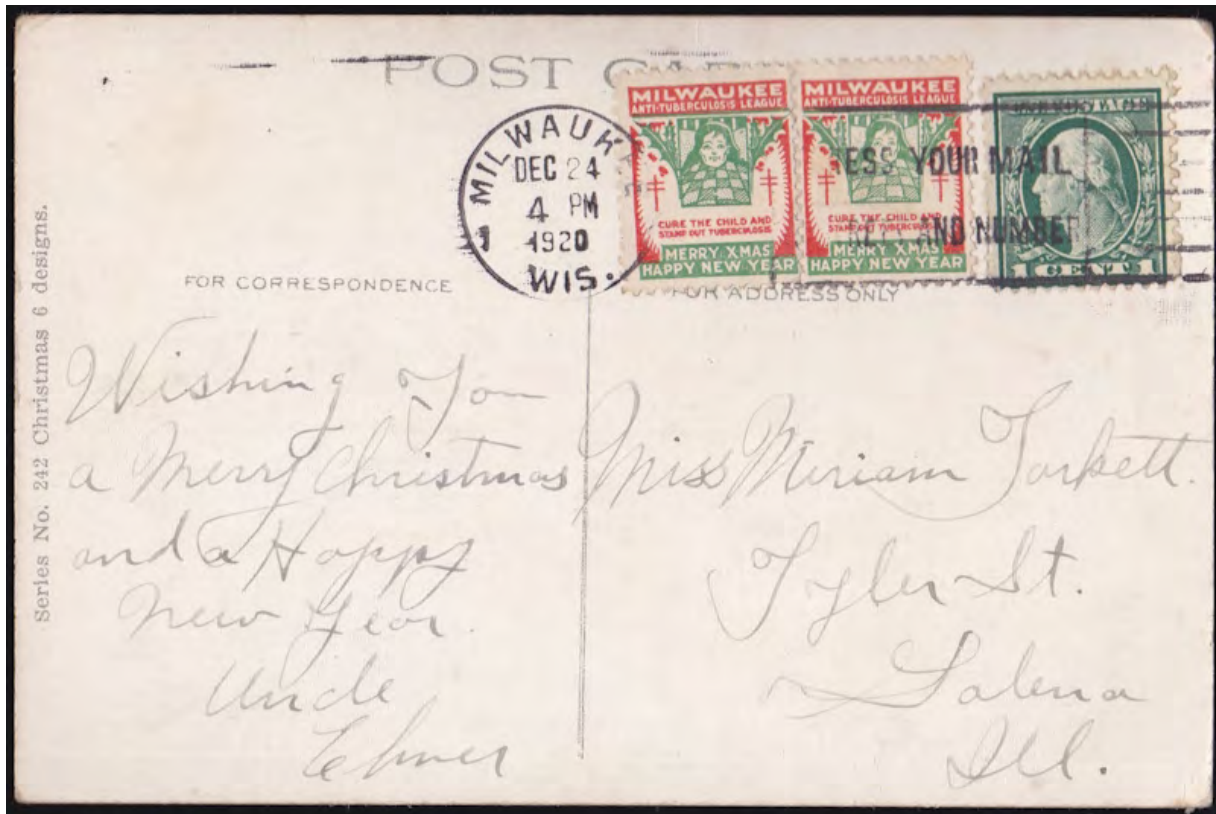 POST CARD
MILWAUKEE
DEC 24
4 PM
1920
WIS.
MILWAUKEE
ANTI-TUBERCULOSIS LEAGUE
CURE THE CHILD AND
STAMP OUT TUBERCULOSIS
MERRY XMAS
HAPPY NEW YEAR
MILWAUKEE
ANTI-TUBERCULOSIS LEAGUE
CURE THE CHILD AND
STAMP OUT TUBERCULOSIS
MERRY XMAS
HAPPY NEW YEAR
YOUR MAIL
AND NUMBER
1 CENT 1
Series No. 242 Christmas 6 designs.
FOR CORRESPONDENCE
Wishing You
a Merry Christmas
and a Happy
New Year.
Uncle
Elmer
FOR ADDRESS ONLY
Miss Miriam
Tyler St.
Galena
Ill.